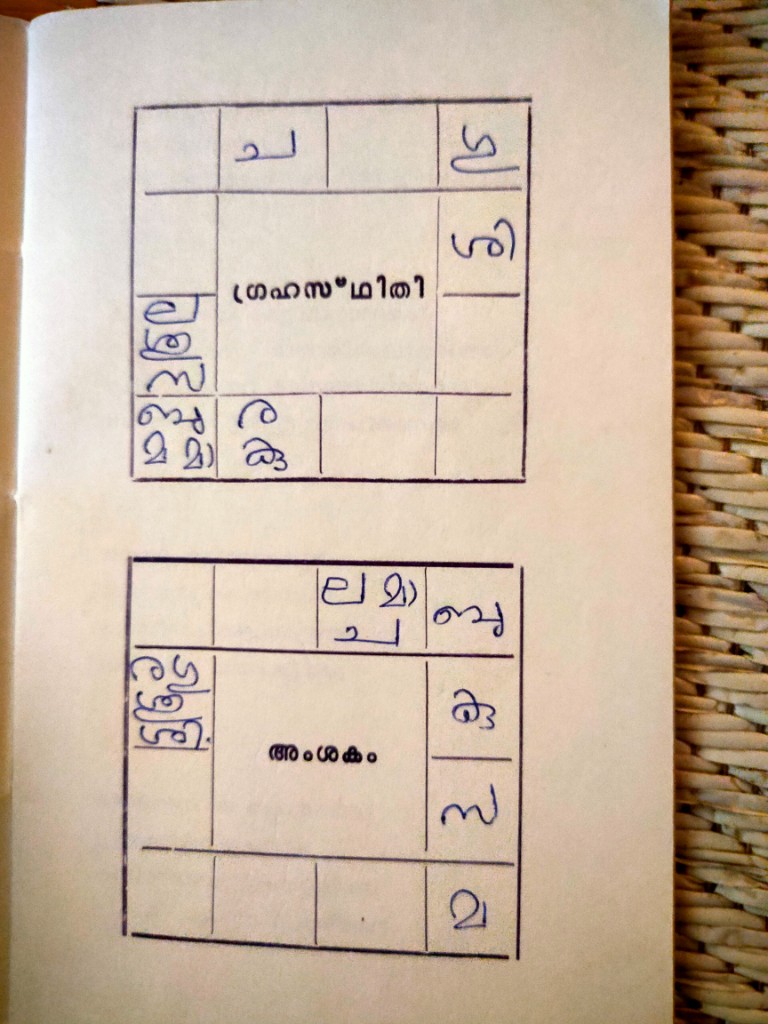 ച
ഗു
ശി
ഗ്രഹസ്ഥിതി
ല
ശു
സ
ബു
മ മാ
ര
കു
ല മാ
ച
ബു
ഗു
ര
ശു
ശി
കു
അംശകം
സ
മ